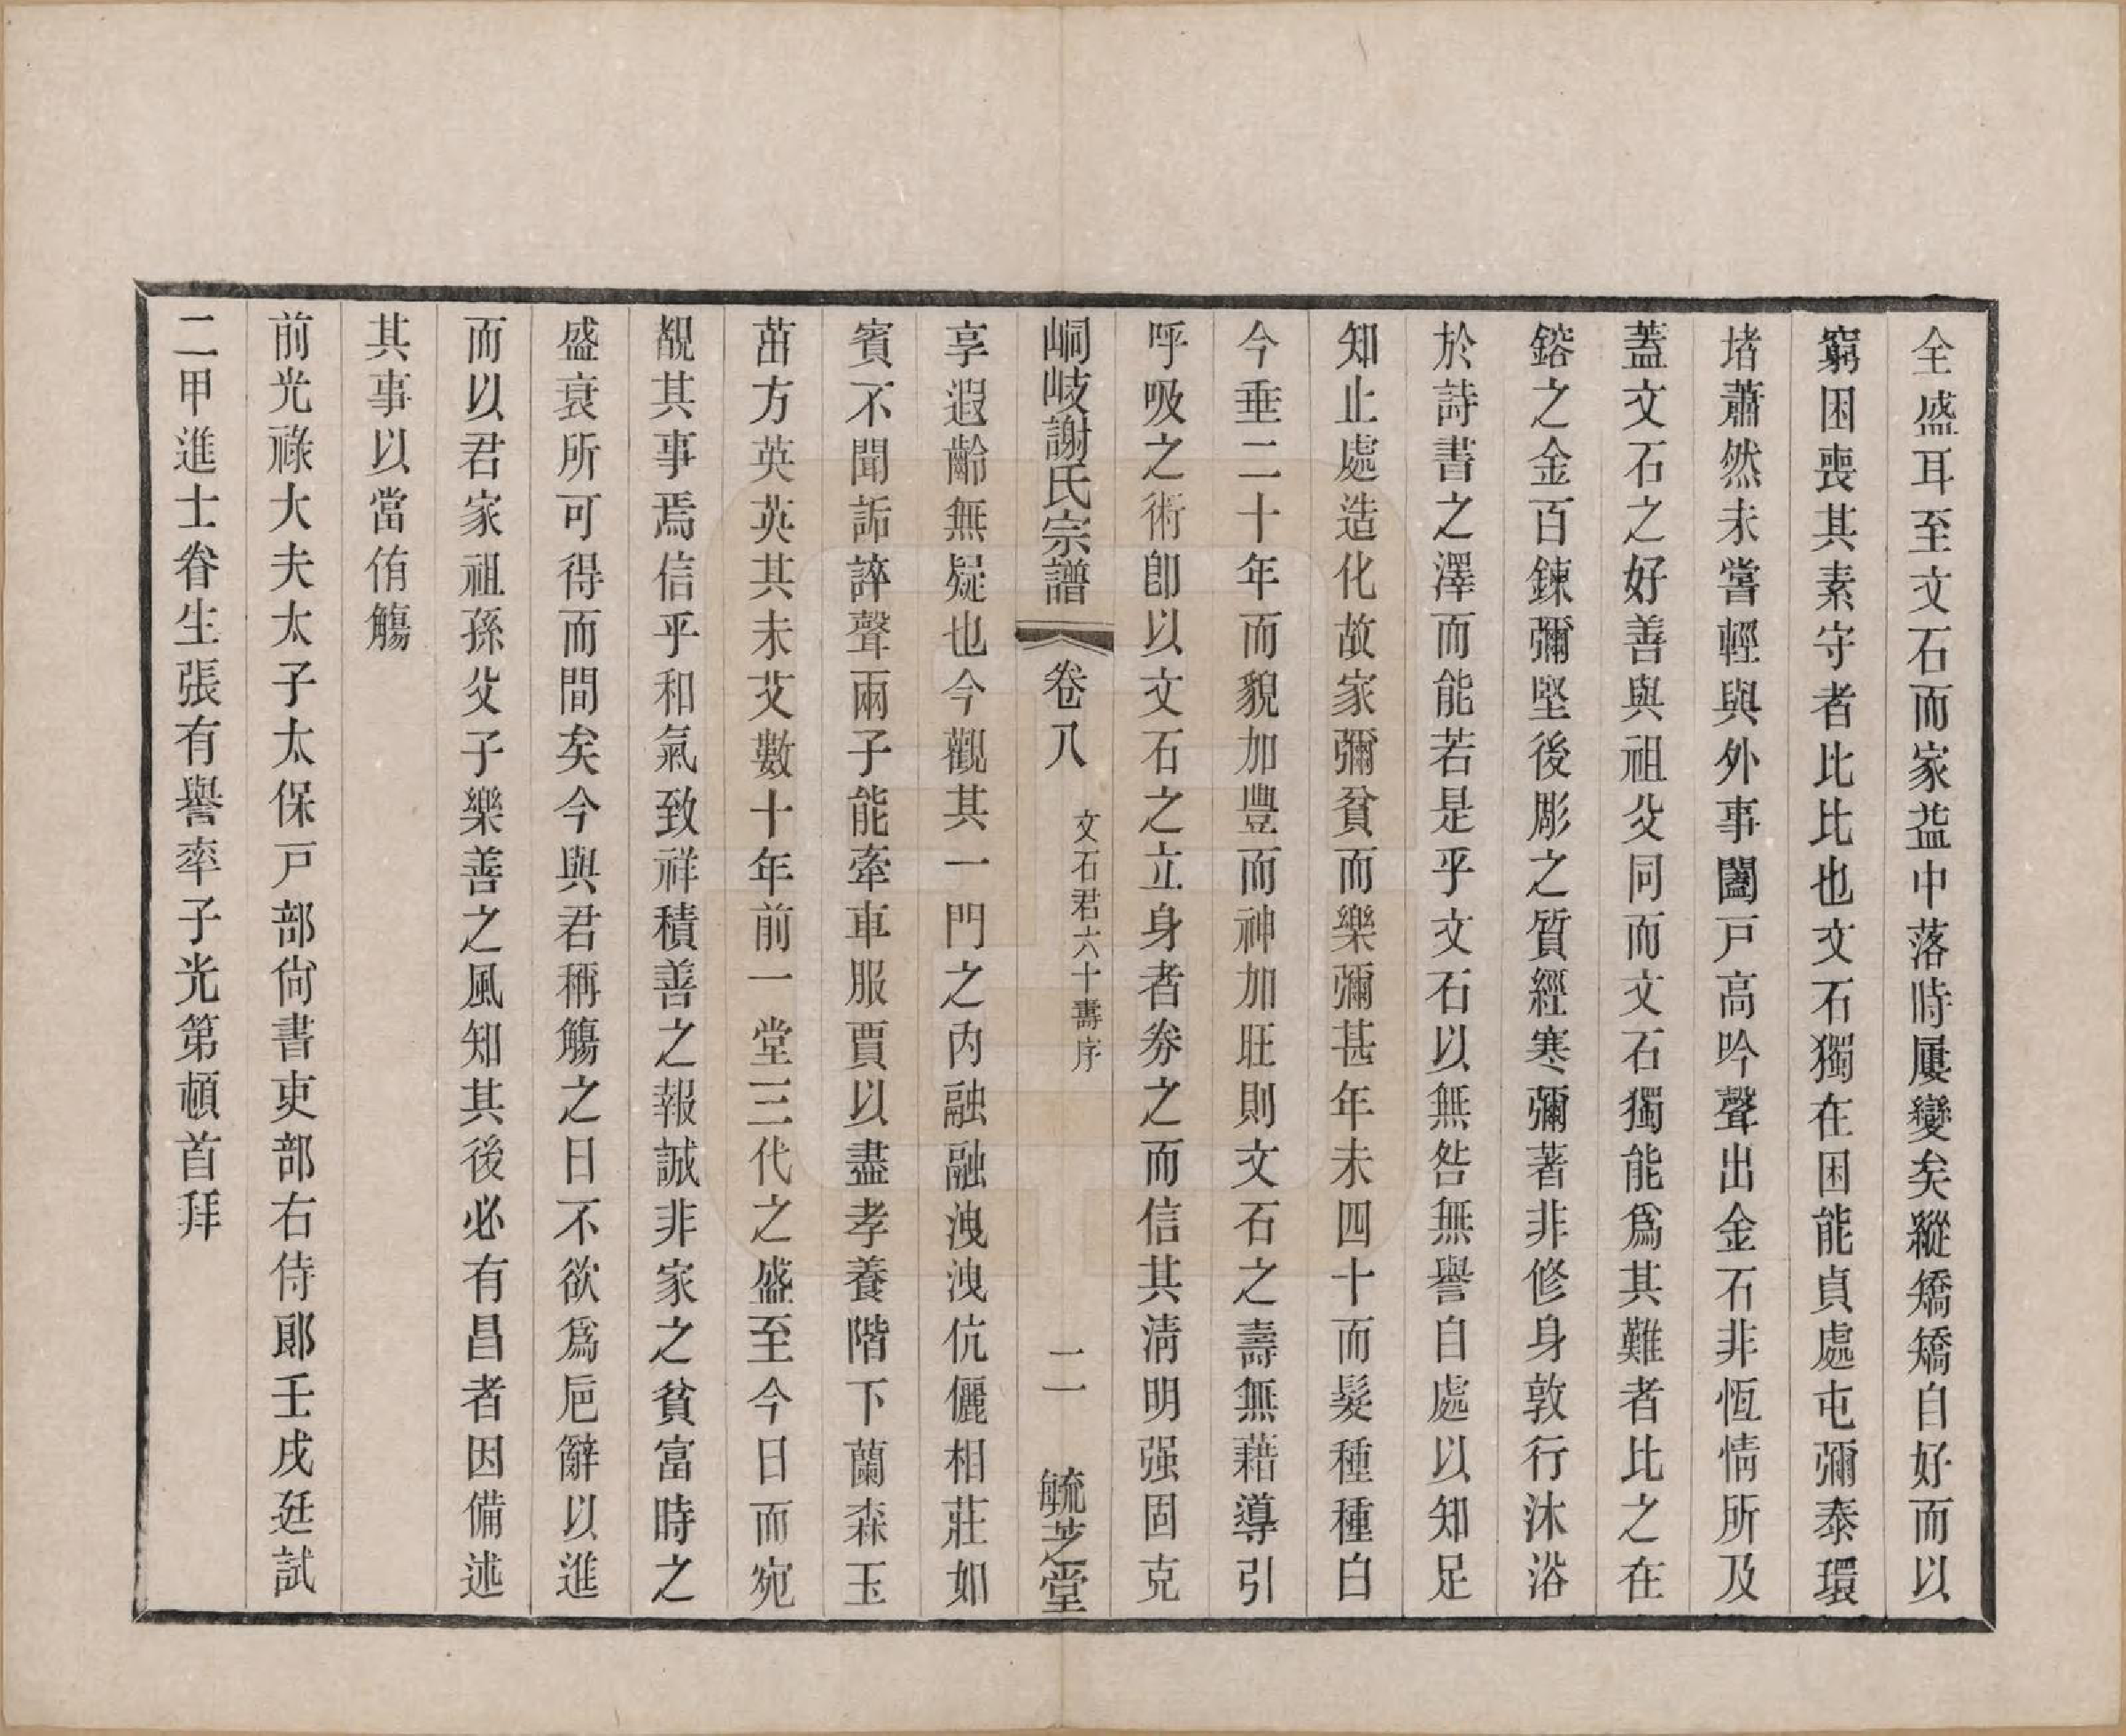 全盛耳至文石而家益中落時屢變矣縱矯矯自好而以
窮困喪其素守者比比也文石獨在困能貞處屯彌泰環
堵蕭然未嘗輕與外事闔戸高吟聲出金石非恆情所及
蓋文石之好善與祖父同而文石獨能爲其難者比之在
鎔之金百鍊彌堅後彫之質經寒彌著非修身敦行沐浴
於詩書之澤而能若是乎文石以無咎無譽自處以知足
知止處造化故家彌貧而樂彌甚年未四十而髮種種白
今垂二十年而貌加豐而神加旺則文石之壽無藉導引
呼吸之術卽以文石之立身者券之而信其淸明强固克
峒岐謝氏宗譜 卷八 文石君六十壽序 二 毓芝堂
享遐齡無疑也今觀其一門之內融融洩洩伉儷相莊如
賓不聞詬誶聲兩子能牽車服賈以盡孝養階下蘭森玉
茁方英英其未艾數十年前一堂三代之盛至今日而宛
覩其事焉信乎和氣致祥積善之報誠非家之貧富時之
盛衰所可得而間矣今與君稱觴之日不欲爲巵辭以進
而以君家祖孫父子樂善之風知其後必有昌者因備述
其事以當侑觴
前光祿大夫太子太保戸部尙書吏部右侍郞壬戌廷試
二甲進士眷生張有譽率子光第頓首拜